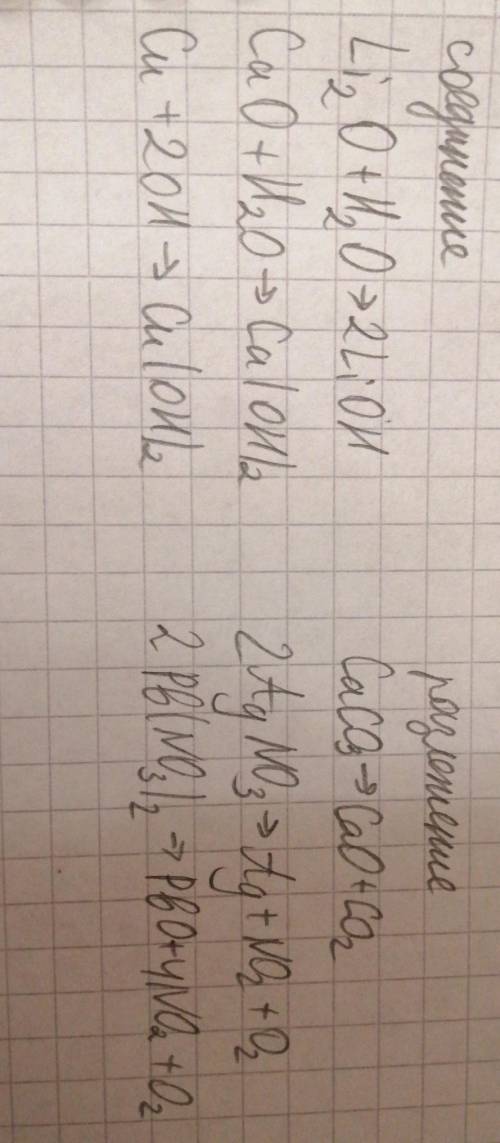 соединение
Li₂O + H₂O → 2LiOH
CaO + H₂O → Ca(OH)₂
Cu + 2OH → Cu(OH)₂
разложение
CaCO₃ → CaO + CO₂
2AgNO₃ → Ag + NO₂ + O₂
2Pb(NO₃)₂ → PbO + 4NO₂ + O₂